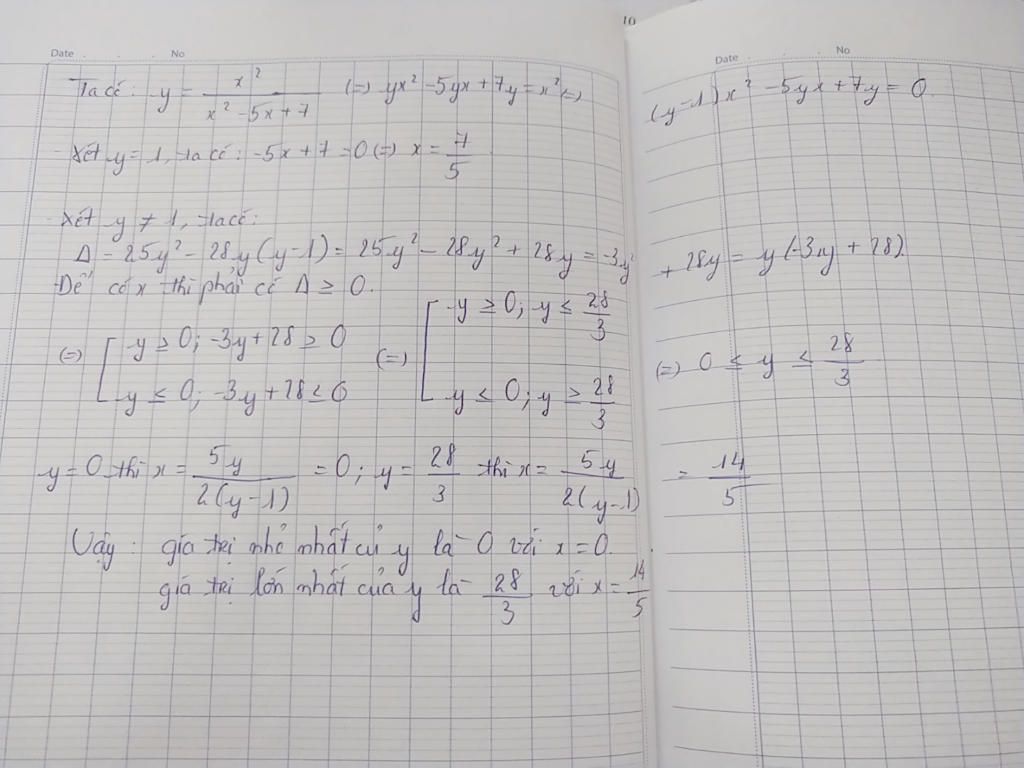 10
Date No
Date No
Ta có: y = x²/(x² - 5x + 7) (=) yx² - 5yx + 7y = x² (=) (y-1)x² - 5yx + 7y = 0.
- Xét y = 1, ta có: -5x + 7 = 0 (=) x = 7/5
- Xét y ≠ 1, ta có:
Δ = 25y² - 28y(y-1) = 25y² - 28y² + 28y = -3y² + 28y = y(-3y + 28).
Để có x thì phải có Δ ≥ 0.
(=) [ y ≥ 0; -3y + 28 ≥ 0 (=) [ y ≥ 0; y ≤ 28/3 (=) 0 ≤ y ≤ 28/3
y ≤ 0; -3y + 28 ≤ 0 y ≤ 0; y ≥ 28/3
y = 0 thì x = 5y/2(y-1) = 0; y = 28/3 thì x = 5y/2(y-1) = 14/5
Vậy: giá trị nhỏ nhất củ y là 0 với x = 0.
giá trị lớn nhất của y là 28/3 với x = 14/5